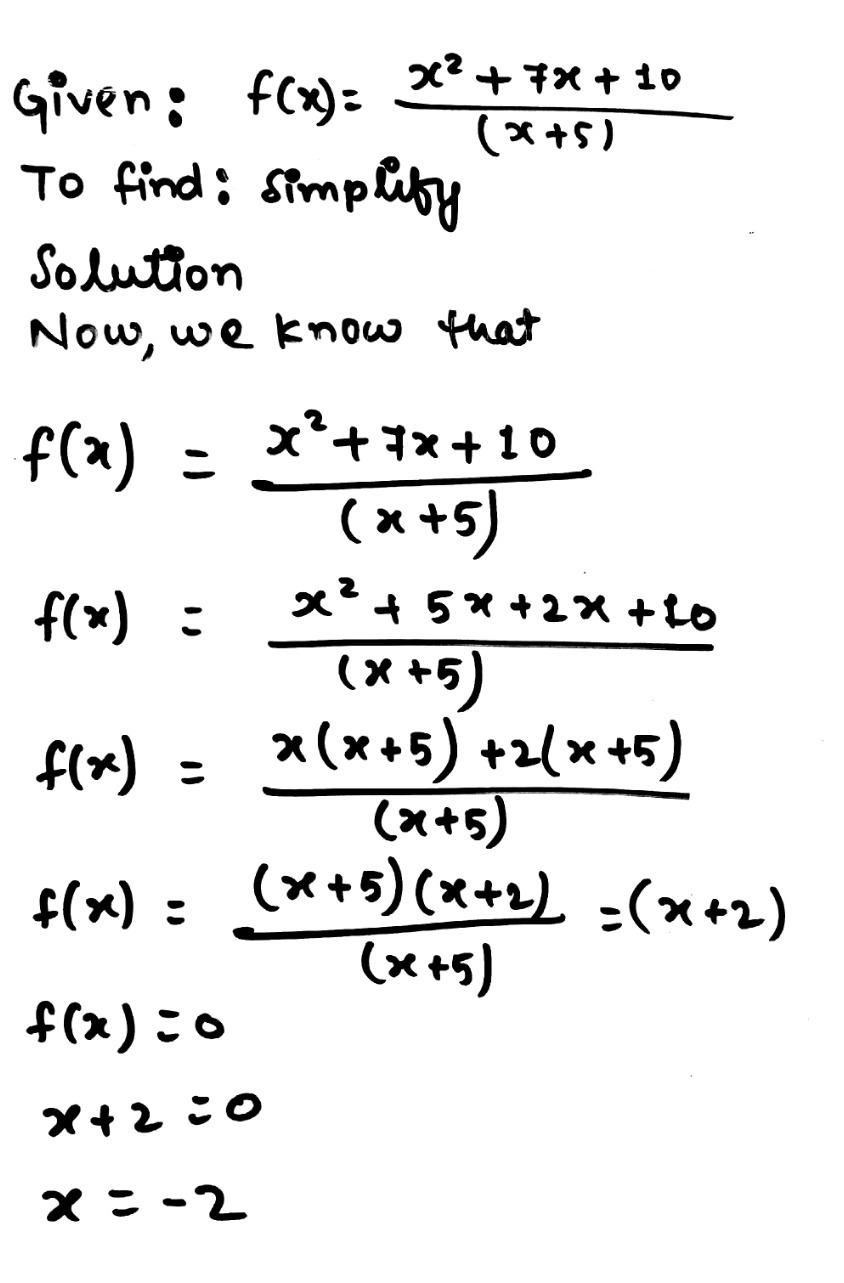 Given: f(x) = (x² + 7x + 10) / (x+5)
To find: Simplify
Solution
Now, we know that
f(x) = (x² + 7x + 10) / (x+5)
f(x) = (x² + 5x + 2x + 10) / (x+5)
f(x) = (x(x+5) + 2(x+5)) / (x+5)
f(x) = ((x+5)(x+2)) / (x+5) = (x+2)
f(x) = 0
x + 2 = 0
x = -2